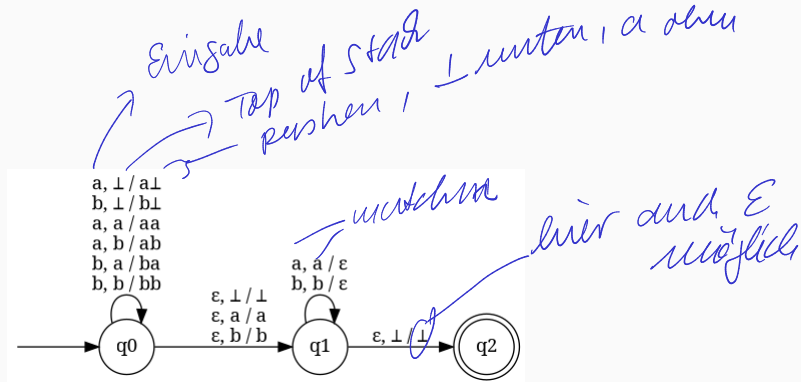 Eingabe
Top of Stack
pushen, ⊥ unten, a oben
a, ⊥ / a⊥
b, ⊥ / b⊥
a, a / aa
a, b / ab
b, a / ba
b, b / bb
matchen
hier auch ε
möglich
a, a / ε
b, b / ε
ε, ⊥ / ⊥
ε, a / a
ε, b / b
ε, ⊥ / ⊥
q0
q1
q2